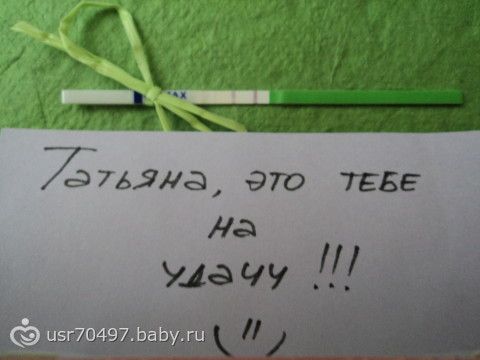 MAX
Татьяна, это тебе
на
удачу !!!
usr70497.baby.ru